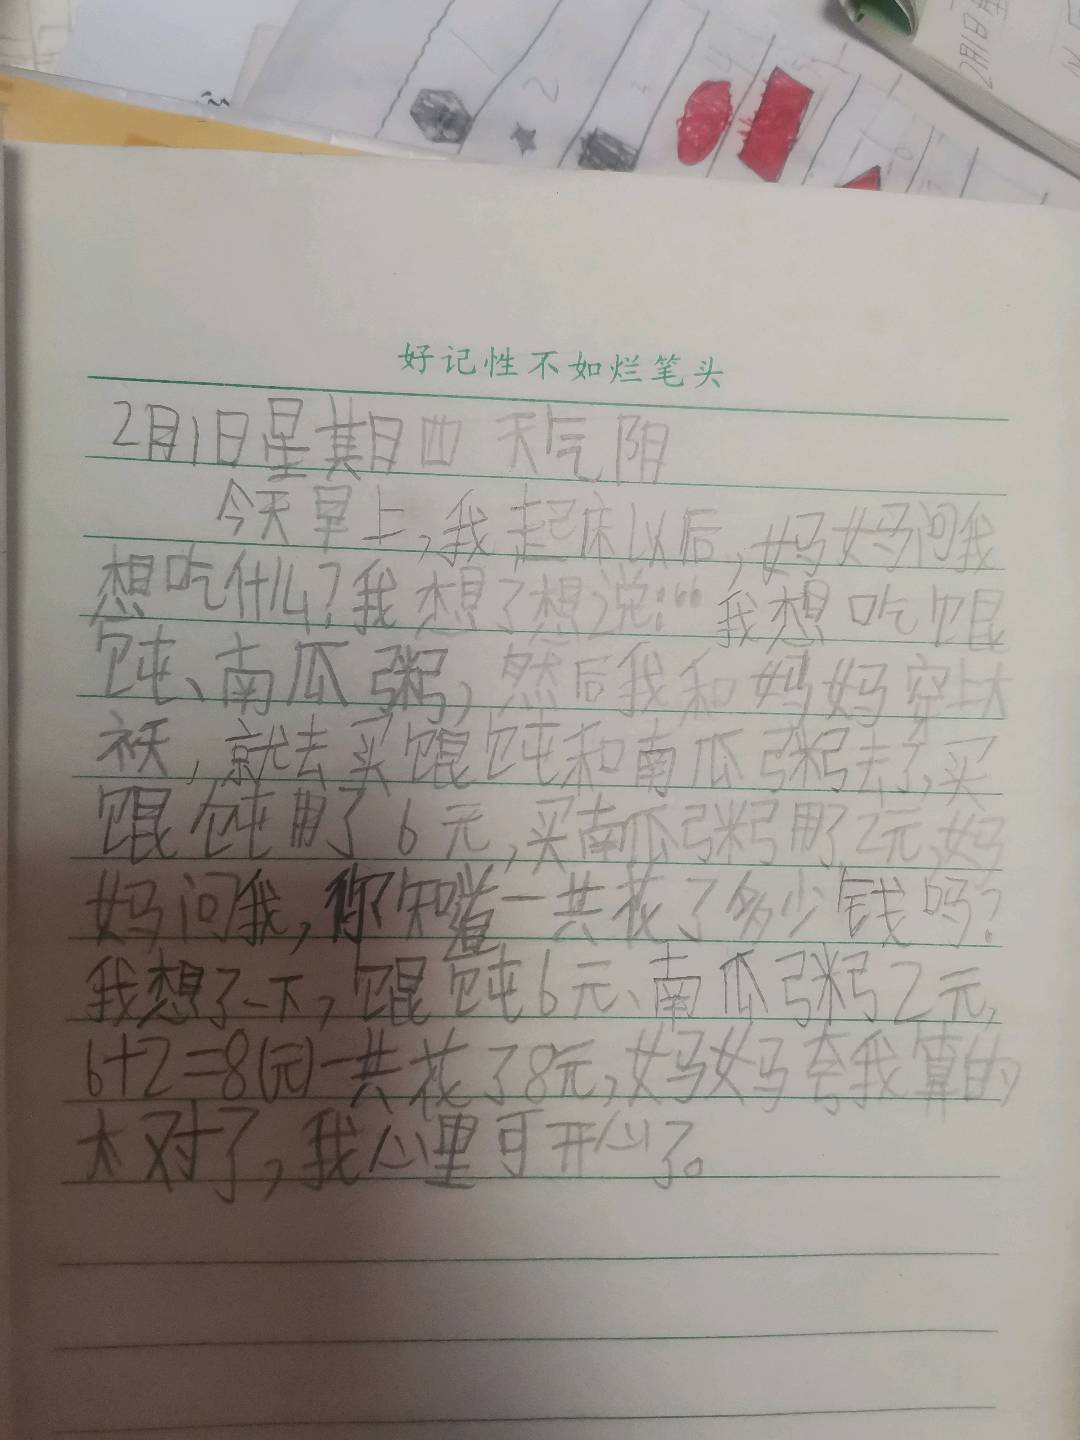 好记性不如烂笔头
2月1日星期日四 天气阴
今天早上,我起床以后,妈妈问我
想吃什么?我想了想说:“我想吃馄
饨、南瓜粥,然后我和妈妈穿上大
袄,就去买馄饨和南瓜粥去了,买
馄饨用了6元,买南瓜粥用了2元,妈
妈问我,你知道一共花了多少钱吗?
我想了一下,馄饨6元、南瓜粥2元,
6+2=8(元)一共花了8元,妈妈夸我算的
太对了,我心里可开心了。
2月1日星